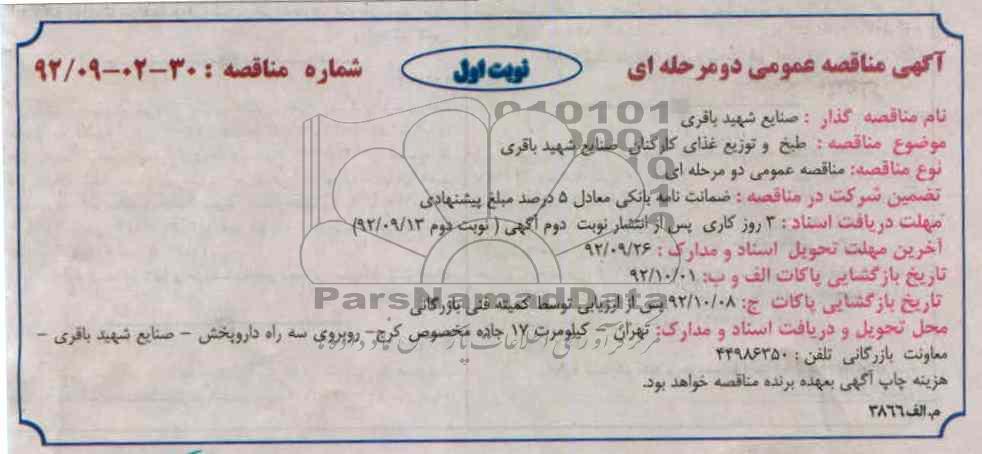 آگهی مناقصه عمومی دومرحله ای
نوبت اول
شماره مناقصه : ۳۰-۰۲-۹۲/۰۹
نام مناقصه گذار : صنایع شهید باقری
موضوع مناقصه : طبخ و توزیع غذای کارکنان صنایع شهید باقری
نوع مناقصه: مناقصه عمومی دو مرحله ای
تضمین شرکت در مناقصه : ضمانت نامه بانکی معادل ۵ درصد مبلغ پیشنهادی
مهلت دریافت اسناد : ۳ روز کاری پس از انتشار نوبت دوم آگهی ( نوبت دوم ۹۲/۰۹/۱۳)
آخرین مهلت تحویل اسناد و مدارک : ۹۲/۰۹/۲۶
تاریخ بازگشایی پاکات الف و ب: ۹۲/۱۰/۰۱
تاریخ بازگشایی پاکات ج: ۹۲/۱۰/۰۸ پس از ارزیابی توسط کمیته فنی بازرگانی
محل تحویل و دریافت اسناد و مدارک: تهران – کیلومرت ۱۷ جاده مخصوص کرج– روبروی سه راه داروپخش – صنایع شهید باقری –
معاونت بازرگانی تلفن : ۴۴۹۸۶۳۵۰
هزینه چاپ آگهی بعهده برنده مناقصه خواهد بود.
م.الف ۳۸۶۶
ParsNamadData